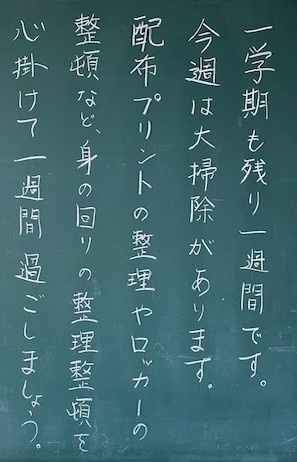 一学期も残り一週間です。
今週は大掃除があります。
配布プリントの整理やロッカーの
整頓など、身の回りの整理整頓を
心掛けて一週間過ごしましょう。